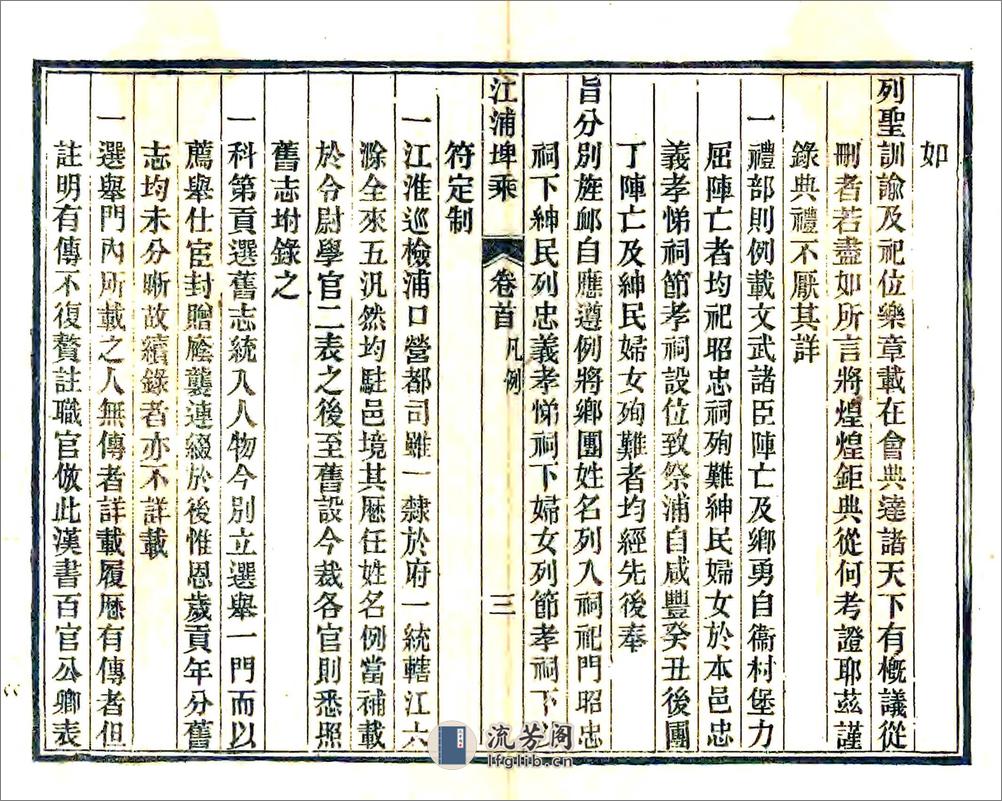 如
列聖訓諭及祀位樂章載在會典達諸天下有槪議從
刪者若盡如所言將煌煌鉅典從何考證耶茲謹
錄典禮不厭其詳
一禮部則例載文武諸臣陣亡及鄉勇自衞村堡力
屈陣亡者均祀昭忠祠殉難紳民婦女於本邑忠
義孝悌祠節孝祠設位致祭浦自咸豐癸丑後團
丁陣亡及紳民婦女殉難者均經先後奉
旨分別旌卹自應遵例將鄉團姓名列入祠祀門昭忠
祠下紳民列忠義孝悌祠下婦女列節孝祠下
江浦埤乘 卷首 凡例 三
符定制
一江淮巡檢浦口營都司雖一隸於府一統轄江六
滁全來五汛然均駐邑境其歷任姓名例當補載
於令尉學官二表之後至舊設今裁各官則悉照
舊志坿錄之
一科第貢選舊志統入人物今別立選舉一門而以
薦舉仕宦封贈廕襲連綴於後惟恩歲貢年分舊
志均未分晰故續錄者亦不詳載
一選舉門內所載之人無傳者詳載履歷有傳者但
註明有傳不復贅註職官倣此漢書百官公卿表
流芳阁
lfglib.cn